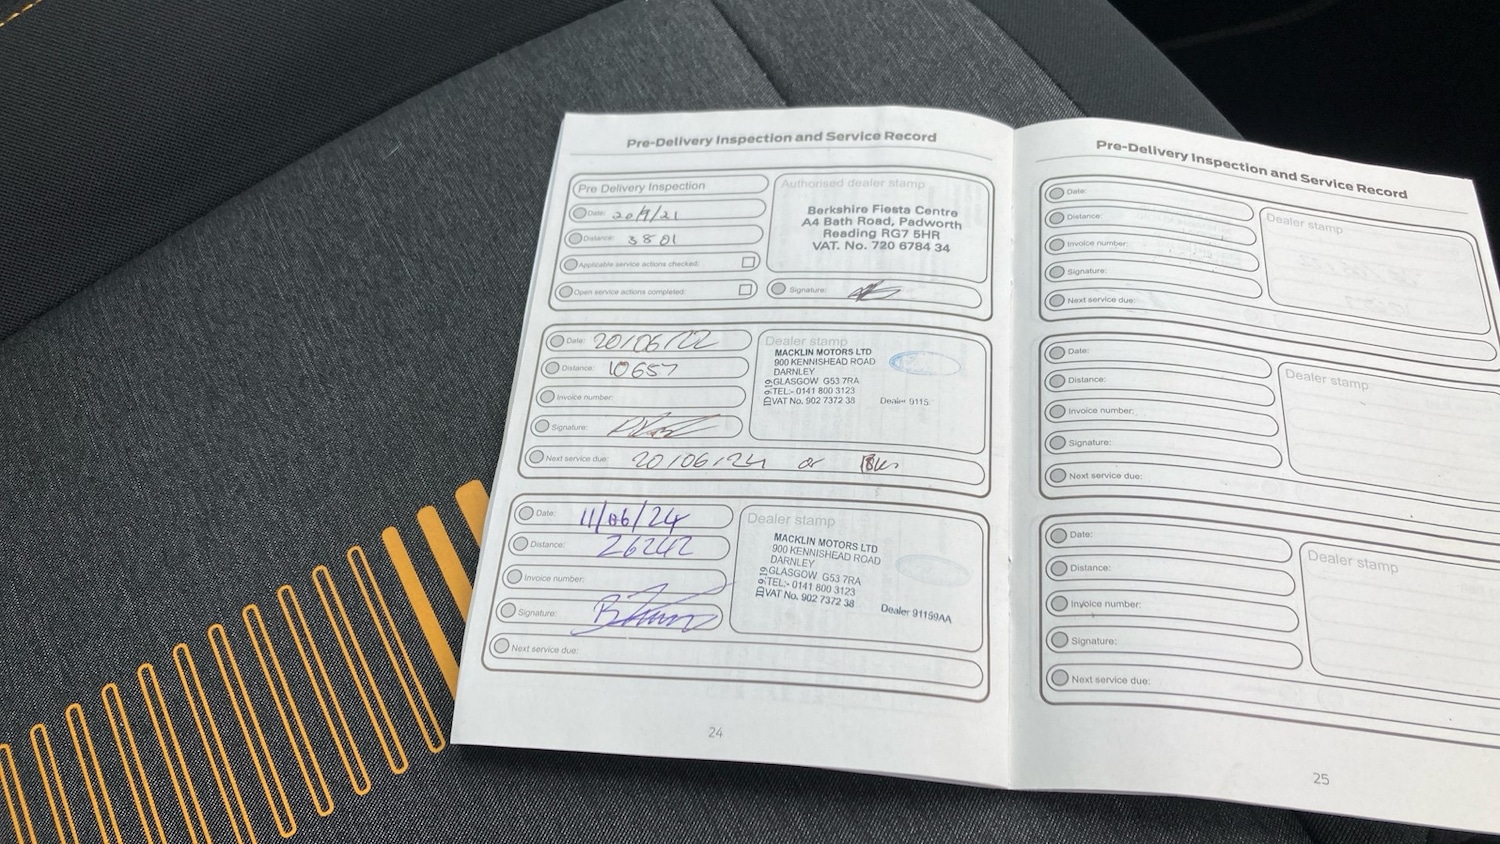 Pre-Delivery Inspection and Service Record
Pre Delivery Inspection
Date: 20/9/21
Distance: 3801
Applicable service actions checked:
Open service actions completed:
Authorised dealer stamp
Berkshire Fiesta Centre
A4 Bath Road, Padworth
Reading RG7 5HR
VAT. No. 720 6784 34
Signature:
Date: 20/06/22
Distance: 10657
Invoice number:
Signature:
Next service due: 20/06/24 or
Dealer stamp
MACKLIN MOTORS LTD
900 KENNISHEAD ROAD
DARNLEY
GLASGOW G53 7RA
TEL:- 0141 800 3123
VAT No. 902 7372 38
ID 9.19
Dealer 9115
Date: 11/06/24
Distance: 26242
Invoice number:
Signature:
Next service due:
Dealer stamp
MACKLIN MOTORS LTD
900 KENNISHEAD ROAD
DARNLEY
GLASGOW G53 7RA
TEL:- 0141 800 3123
VAT No. 902 7372 38
ID 9.19
Dealer 91159AA
24
Pre-Delivery Inspection and Service Record
Date:
Distance:
Invoice number:
Signature:
Next service due:
Dealer stamp
Date:
Distance:
Invoice number:
Signature:
Next service due:
Dealer stamp
Date:
Distance:
Invoice number:
Signature:
Next service due:
Dealer stamp
25